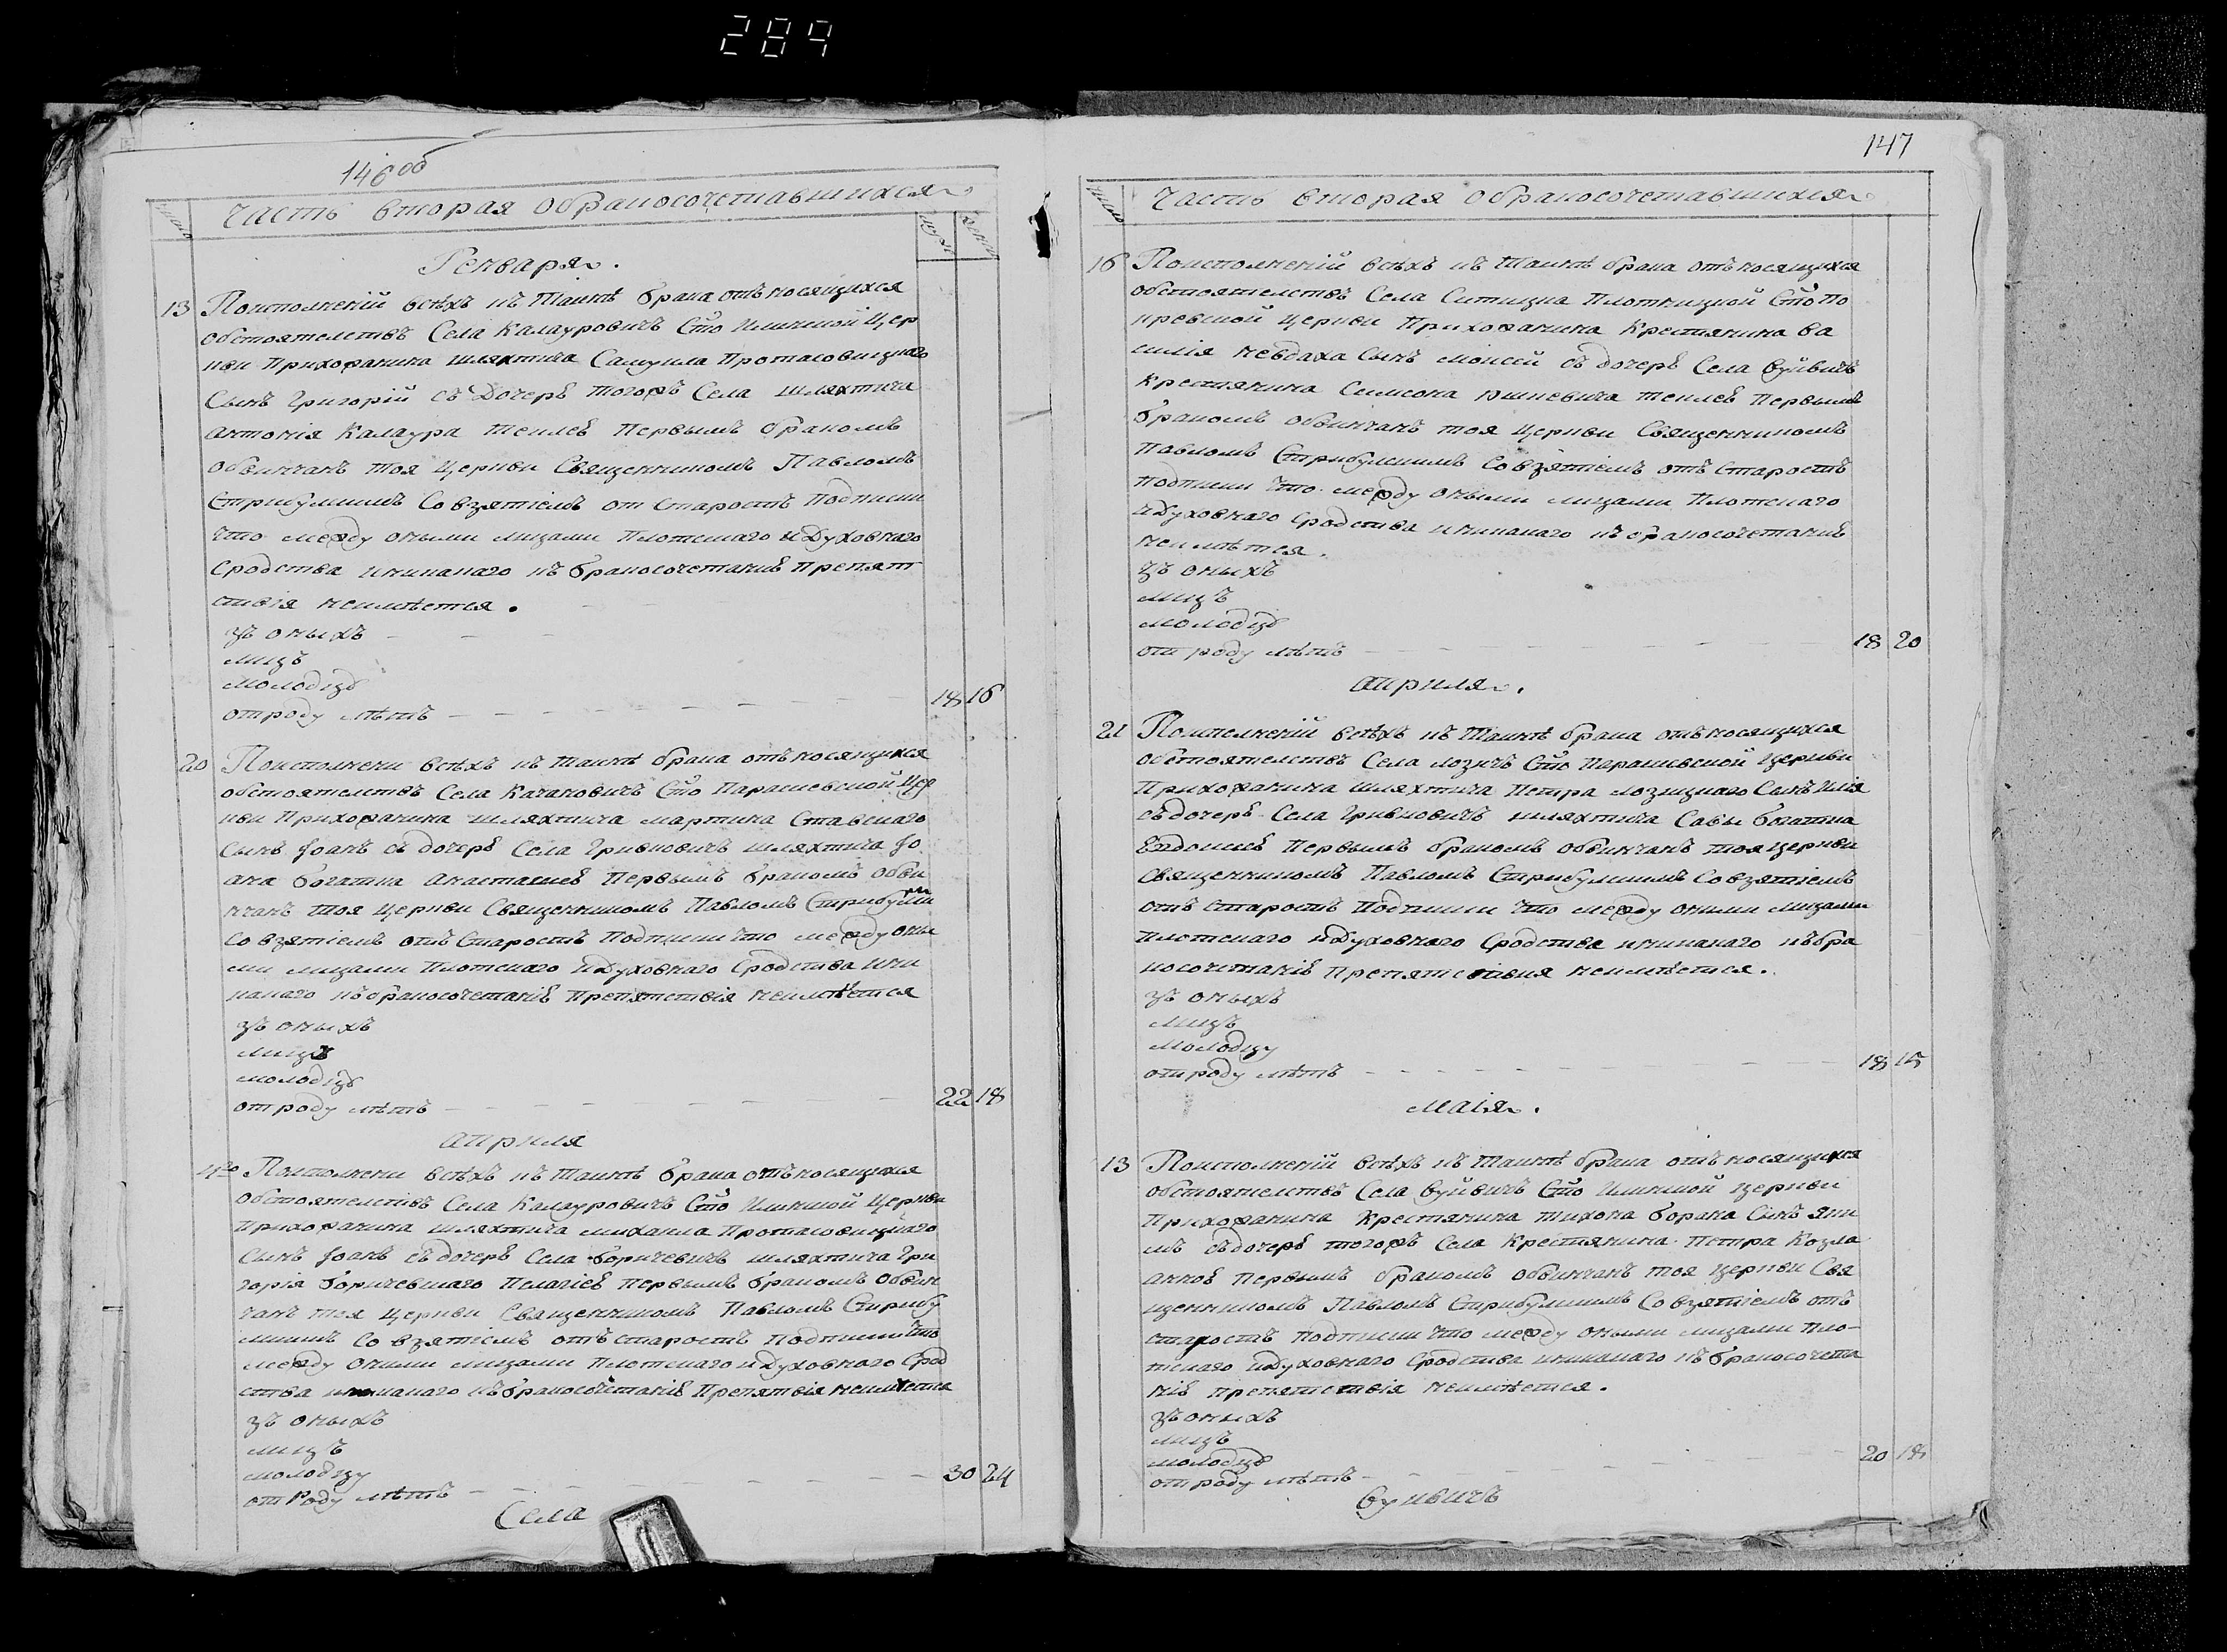 289
146 об
число
Часть вторая обракосочетавшихся
мужи
жены
Генваря.
13 Поисполненій всѣхъ къ Таинѣ брака отъносящихся
обстоятелствъ Села Калауровичъ Сто Илинской Цер
кви Прихожанина шляхтича Самуила Протасовицкаго
Сынъ Григорій съ Дочерѣ тогожъ Села шляхтича
антонія Калаура теклеѣ Первымъ бракомъ
обвинчанъ тоя Церкви Священникомъ Павломъ
Стрибулшимъ Совзятіемъ от Старостъ Подписки
что между оными лицами Плотскаго идуховнаго
Сродства никакаго къ бракосочетаніѣ Препят
ствія неимѣется.
зъ оныхъ
лицъ
молодцѣ
отроду лѣтъ 18 16
20 Поисполнени всѣхъ къ таинѣ брака отъносящихся
обстоятелствъ Села Качановичъ Сто Параскевской Цер
кви Прихожанина шляхтича мартина Ставскаго
Сынъ Іоанъ съ дочерѣ Села Гривковичъ шляхтича Іо
ана богатка анастасіеѣ Первымъ бракомъ обви
нчанъ тоя Церкви Священникомъ Павломъ Стрибулши
м
Совзятіемъ отъ Старостъ Подписки что между оны
ми лицами Плотскаго идуховнаго Сродства ник
какаго къбракосочетаніѣ Препятствія неимѣется
зъ оныхъ
лицъ
молодцѣ
отроду лѣтъ 22 18
априля
20 Поисполнени всѣхъ къ таинѣ брака отъносящихся
обстоятелствъ Села Калауровичъ Сто Илинской Церкви
Прихожанина шляхтича михаила Протасовицкаго
Сынъ Іоанъ съдочерѣ Села боричевичъ шляхтича Гри
горія боричевшаго Пелагіеѣ Первымъ бракомъ обвин
чанъ тоя Церкви Священникомъ Павломъ Стрибу
лшимъ Совзятіемъ отъ старостъ Подписки что
между оними лицами Плотскаго идуховнаго Срод
ства никакаго къбракосочетаніѣ Препятвія неимѣется
зъ оныхъ
лицъ
молодцу
отроду лѣтъ 30 24
Села
147
число
Часть вторая обракосочетавшихся
16 Поисполненій всѣхъ къ таинѣ брака отъносящихся
обстоятелствъ Села Ситицка Плотницкой Сто По
кревской Церкви Прихожанина Крестянина Ва
силія невдаха Сынъ моисей съ дочерѣ Села вуйвичъ
Крестянина Самсона Юшкевича теклеѣ Первымъ
бракомъ обвинчанъ тоя Церкви Священникомъ
Павломъ Стрибулшимъ Совзятіемъ отъ Старостъ
Подписки что между оными лицами Плотскаго
идуховнаго Сродства никакаго къ бракосочетаніѣ
неимѣтся.
зъ оныхъ
лицъ
молодцѣ
отроду лѣтъ 18 20
априля.
21 Поисполненій всѣхъ къ таинѣ брака отъносящихся
обстоятелствъ Села лозичъ Сто Параскевской Церкви
Прихожанина шляхтича Петра лозицкаго Сынъ Илія
съдочерѣ Села Гривковичъ шляхтича Савы богатка
Евдокіеѣ Первымъ бракомъ обвинчанъ тоя Церкви
Священникомъ Павломъ Стрибулшимъ Совзятіемъ
отъ старостъ Подписки что между оними лицами
плотскаго идуховнаго Сродства никакаго къбра
косочетаніѣ Препятствия неимѣется.
зъ оныхъ
лицъ
молодцу
отроду лѣтъ 18 15
маія.
13 Поисполненій всѣхъ къ таинѣ брака отъносящихся
обстоятелствъ Села вуйвичъ Сто Илинской Церкви
Прихожанина Крестянина тихона борака Сынъ Яки
мъ съдочерѣ тогожъ Села Крестянина Петра Козла
анноѣ Первымъ бракомъ обвинчанъ тоя Церкви Свя
щенникомъ Павломъ Стрибулшимъ Совзятіемъ отъ
старостъ Подписки что между оными лицами Пло-
тскаго идуховнаго Сродства никакаго къ бракосочета
ніѣ препятствія неимѣется.
зъ оныхъ
лицъ
молодцѣ
отроду лѣтъ 20 18
вуивичъ